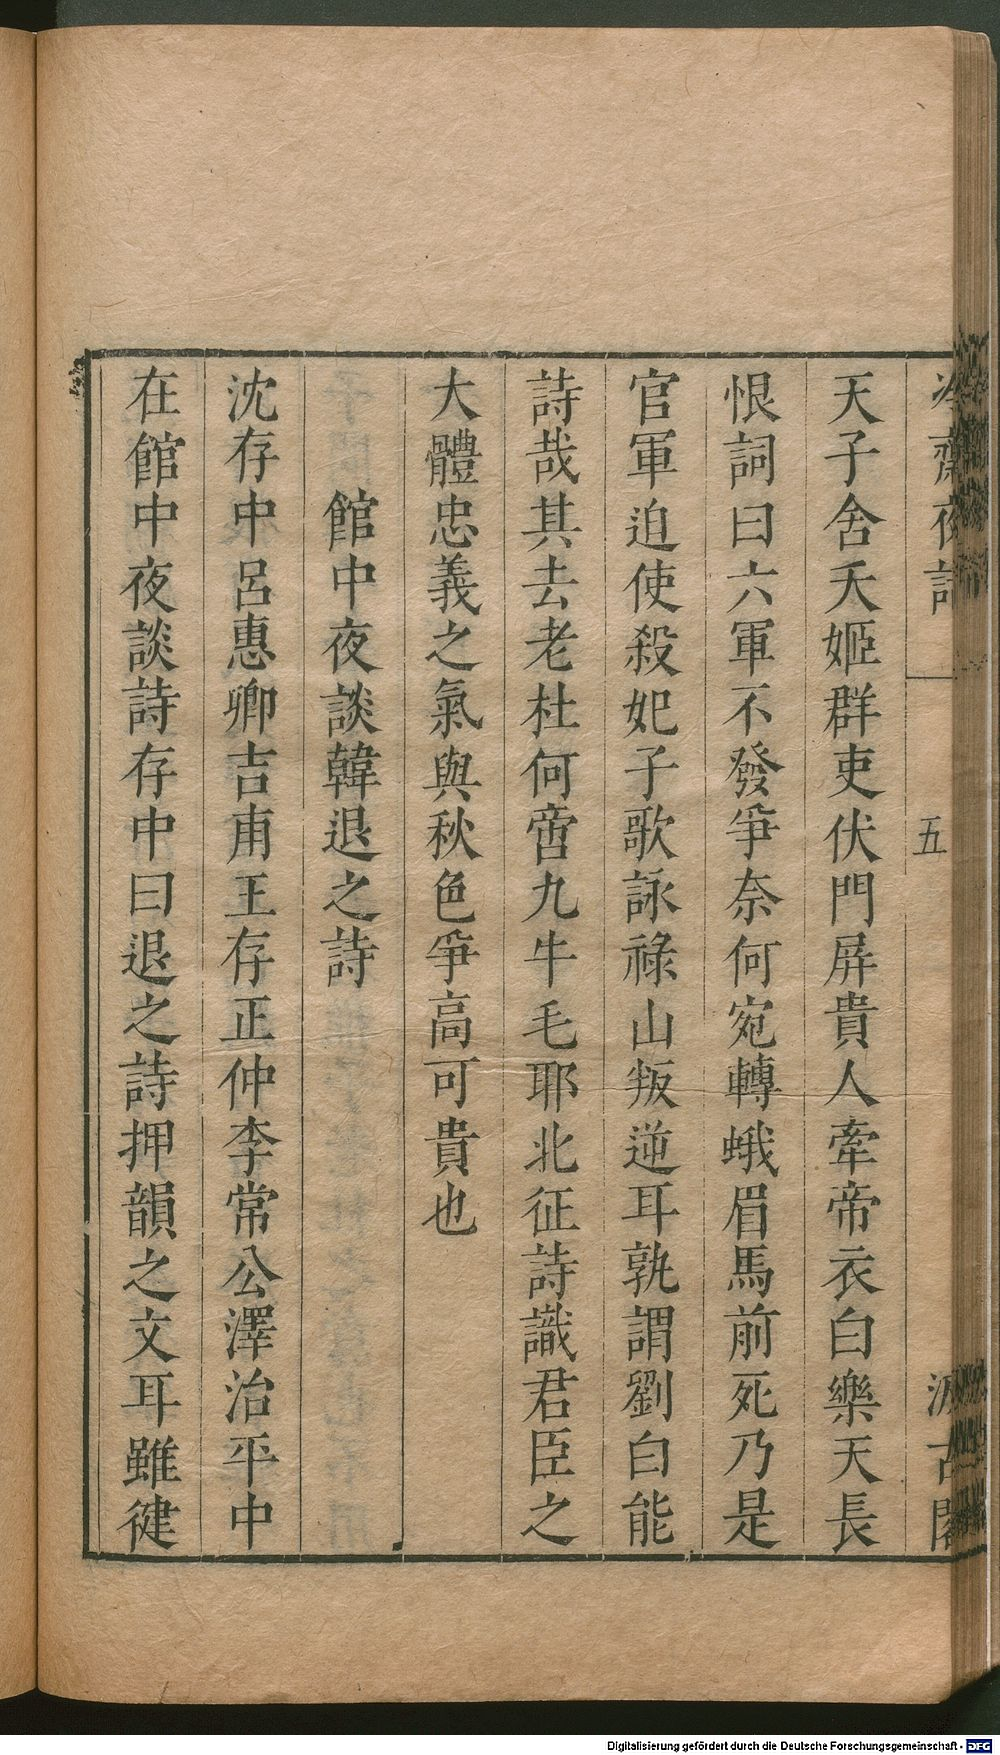 冷齋夜話
五
汲古閣
天子舍夭姬群吏伏門屏貴人牽帝衣白樂天長
恨詞曰六軍不發爭奈何宛轉蛾眉馬前死乃是
官軍迫使殺妃子歌詠祿山叛逆耳孰謂劉白能
詩哉其去老杜何啻九牛毛耶北征詩識君臣之
大體忠義之氣與秋色爭高可貴也
館中夜談韓退之詩
沈存中呂惠卿吉甫王存正仲李常公澤治平中
在館中夜談詩存中曰退之詩押韻之文耳雖健
Digitalisierung gefördert durch die Deutsche Forschungsgemeinschaft - DFG